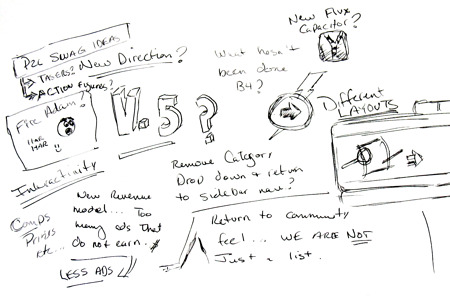 P2L SWAG IDEAS
TASERS?
ACTION FIGURES?
New Direction?
Fire Adam?
HAR
HAR
!!
V1.5?
What hasn't
been done
B4?
New Flux
Capacitor?
Different
LAYOUTS
Interactivity
Comps
Prizes
etc..
New Revenue
model... Too
many ads that
do not earn.
LESS ADS
Remove Category
Drop down & return
to sidebar nav?
Return to community
feel... WE ARE NOT
Just a list.